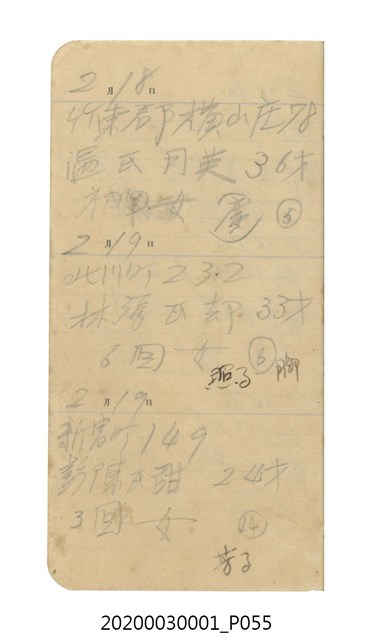 2月18日
竹東郡横山庄78
温氏月英 36才
女 ⑤
2月19日
北門町232
林張氏却 33才
6回女 ⑥
照子 脚
2月19日
新富町149
彭陳氏甜 24才
3回女 ⑭
芳子
20200030001_P055